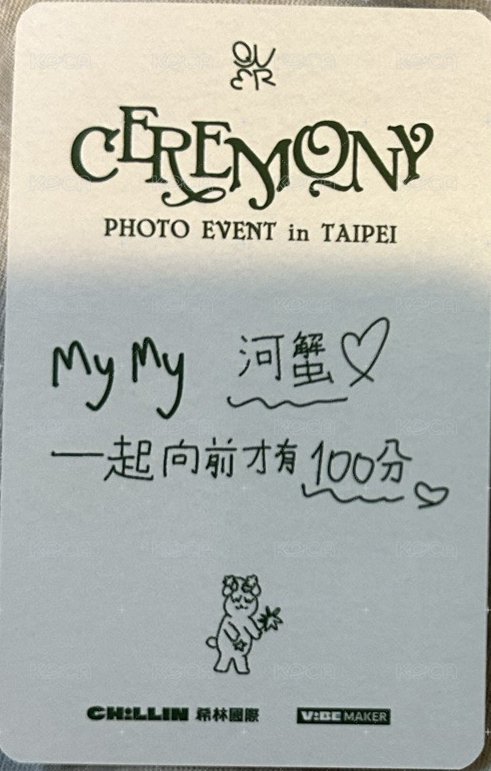 QWER
CEREMONY
PHOTO EVENT in TAIPEI
My My 河蟹♡
一起向前才有100分♡
CH!LLIN 希林國際 V!BE MAKER